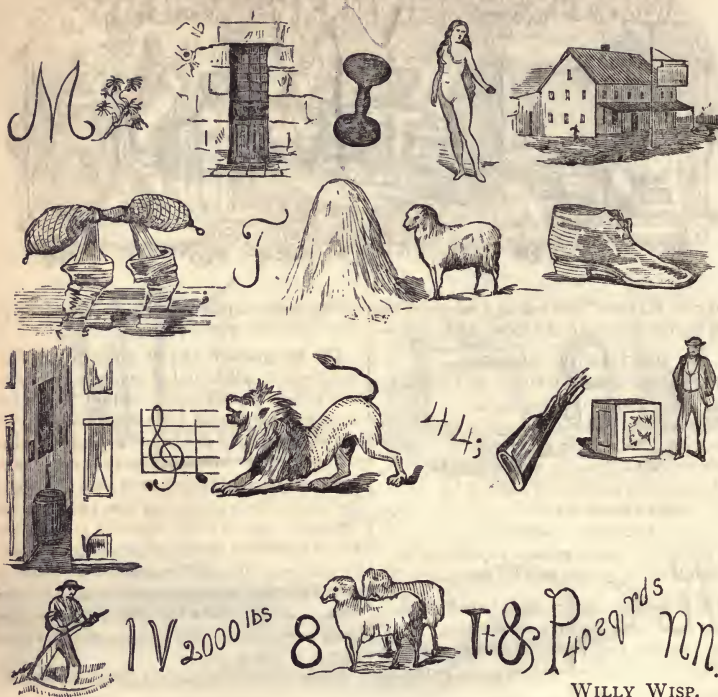 M
T
44;
I V 2000 lbs 8 Tt & P 40 sq rds nn.
WILLY WISP.